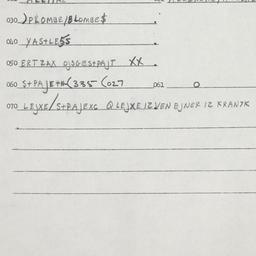 030 )PLOMBE/BLOMBE$
040 YASTLE55
050 ERTZAX OJSGESTPAJT XX
060 S+PAJE++(335 (027 061 O
070 LEJXE/S+PAJEXC Q LEJXE IZ VEN EJNER IZ KRANJK